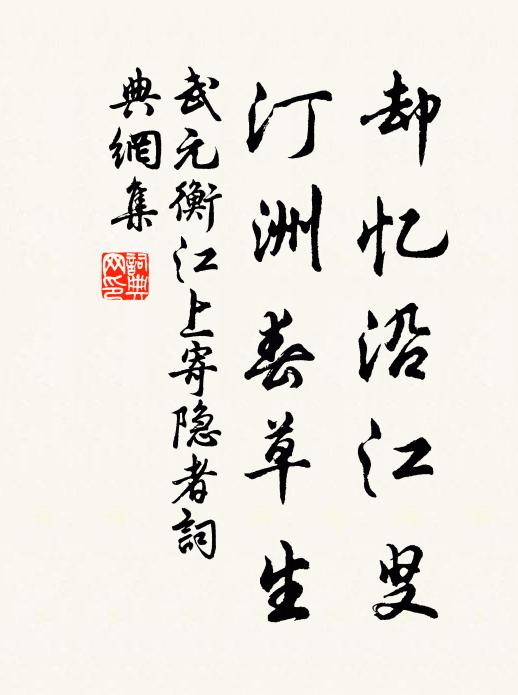 却忆沿江叟
汀洲春草生
武元衡江上寄隐者詞
典網集
詞典网印